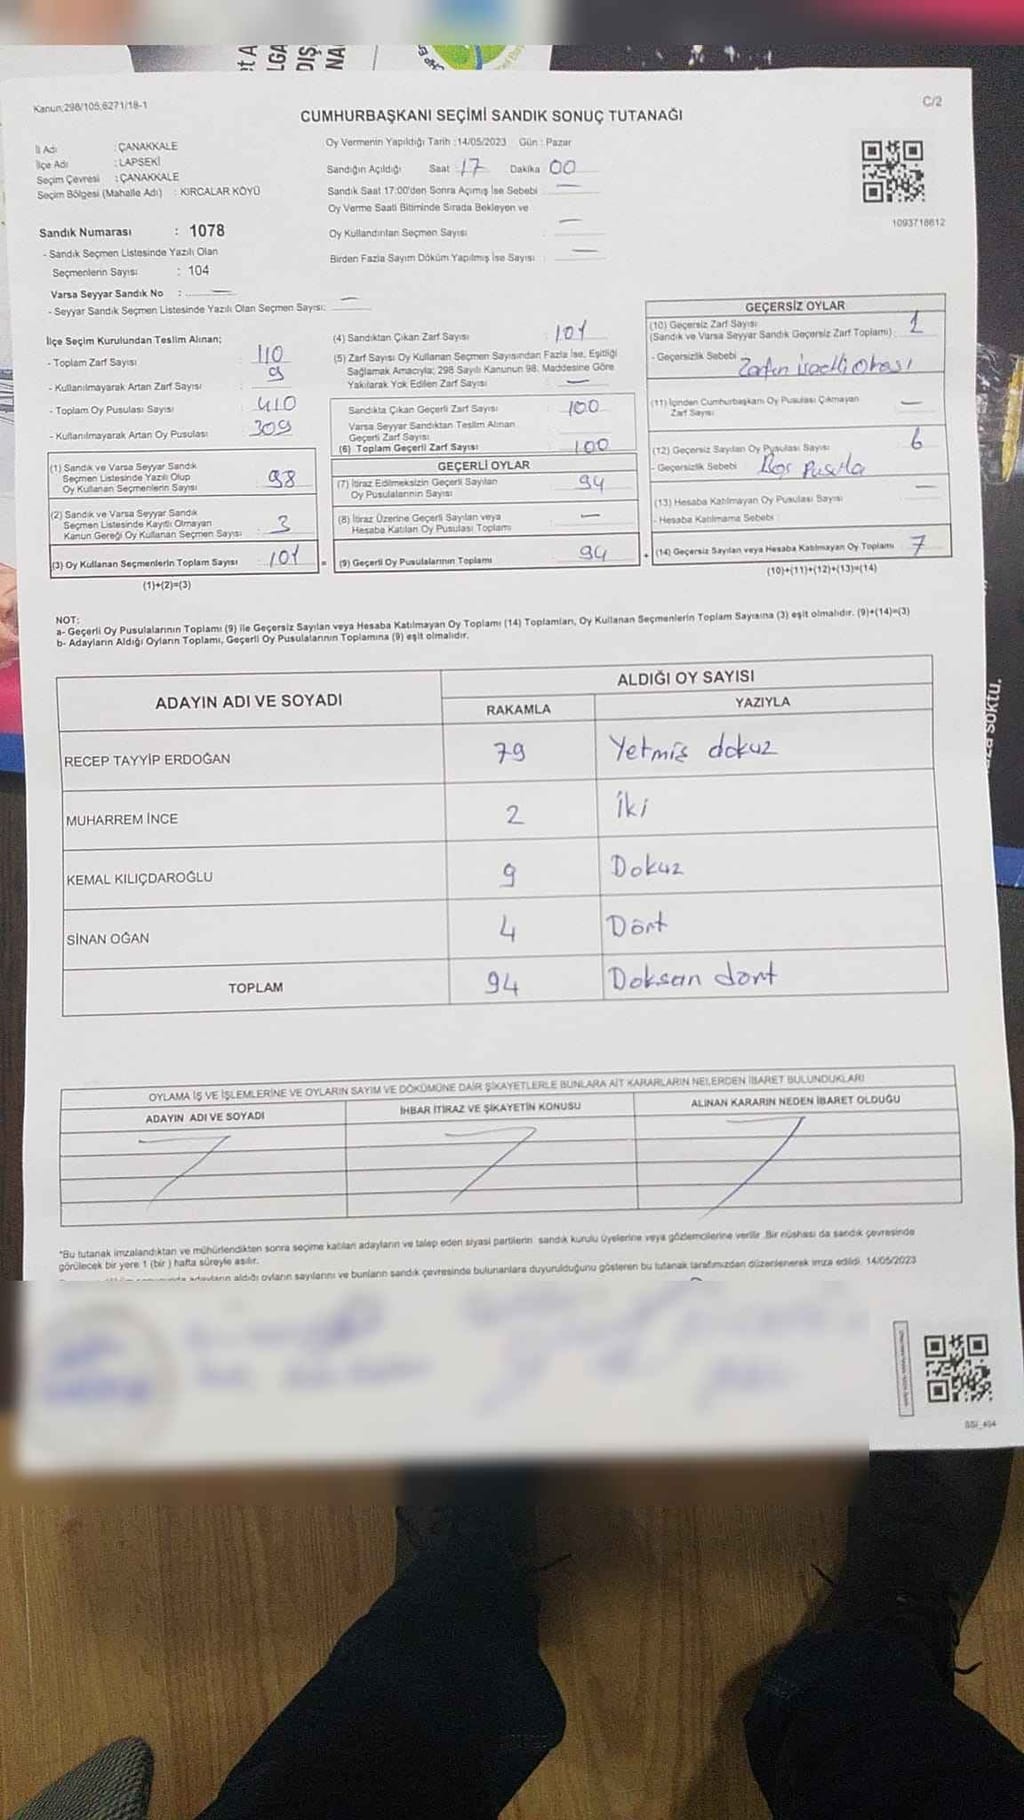 Kanun;298/105;6271/18-1
C/2
CUMHURBAŞKANI SEÇİMİ SANDIK SONUÇ TUTANAĞI
İl Adı : ÇANAKKALE
İlçe Adı : LAPSEKİ
Seçim Çevresi : ÇANAKKALE
Seçim Bölgesi (Mahalle Adı) : KIRCALAR KÖYÜ
Oy Vermenin Yapıldığı Tarih :14/05/2023 Gün : Pazar
Sandığın Açıldığı Saat 17 Dakika 00
Sandık Saat 17:00'den Sonra Açımış İse Sebebi : —
Oy Verme Saati Bitiminde Sırada Bekleyen ve
Oy Kullandırılan Seçmen Sayısı : —
Birden Fazla Sayım Döküm Yapılmış İse Sayısı : —
1093718612
Sandık Numarası : 1078
- Sandık Seçmen Listesinde Yazılı Olan
Seçmenlerin Sayısı : 104
Varsa Seyyar Sandık No : —
- Seyyar Sandık Seçmen Listesinde Yazılı Olan Seçmen Sayısı: —
İlçe Seçim Kurulundan Teslim Alınan;
- Toplam Zarf Sayısı 110
- Kullanılmayarak Artan Zarf Sayısı 9
- Toplam Oy Pusulası Sayısı 410
- Kullanılmayarak Artan Oy Pusulası 309
(1) Sandık ve Varsa Seyyar Sandık
Seçmen Listesinde Yazılı Olup
Oy Kullanan Seçmenlerin Sayısı 98
(2) Sandık ve Varsa Seyyar Sandık
Seçmen Listesinde Kayıtlı Olmayan
Kanun Gereği Oy Kullanan Seçmen Sayısı : 3
(3) Oy Kullanan Seçmenlerin Toplam Sayısı 101
(1)+(2)=(3)
(4) Sandıktan Çıkan Zarf Sayısı 101
(5) Zarf Sayısı Oy Kullanan Seçmen Sayısından Fazla İse, Eşitliği
Sağlamak Amacıyla; 298 Sayılı Kanunun 98. Maddesine Göre
Yakılarak Yok Edilen Zarf Sayısı —
Sandıkta Çıkan Geçerli Zarf Sayısı 100
Varsa Seyyar Sandıktan Teslim Alınan
Geçerli Zarf Sayısı
(6) Toplam Geçerli Zarf Sayısı 100
GEÇERLİ OYLAR
(7) İtiraz Edilmeksizin Geçerli Sayılan
Oy Pusulalarının Sayısı 94
(8) İtiraz Üzerine Geçerli Sayılan veya
Hesaba Katılan Oy Pusulası Toplamı —
= (9) Geçerli Oy Pusulalarının Toplamı 94
GEÇERSİZ OYLAR
(10) Geçersiz Zarf Sayısı
(Sandık ve Varsa Seyyar Sandık Geçersiz Zarf Toplamı) : 1
- Geçersizlik Sebebi Zarfın
(11) İçinden Cumhurbaşkanı Oy Pusulası Çıkmayan
Zarf Sayısı —
(12) Geçersiz Sayılan Oy Pusulası Sayısı 6
- Geçersizlik Sebebi Boş Pusula
(13) Hesaba Katılmayan Oy Pusulası Sayısı —
- Hesaba Katılmama Sebebi :
+ (14) Geçersiz Sayılan veya Hesaba Katılmayan Oy Toplamı 7
(10)+(11)+(12)+(13)=(14)
NOT:
a- Geçerli Oy Pusulalarının Toplamı (9) ile Geçersiz Sayılan veya Hesaba Katılmayan Oy Toplamı (14) Toplamları, Oy Kullanan Seçmenlerin Toplam Sayısına (3) eşit olmalıdır. (9)+(14)=(3)
b- Adayların Aldığı Oyların Toplamı, Geçerli Oy Pusulalarının Toplamına (9) eşit olmalıdır.
ADAYIN ADI VE SOYADI
ALDIĞI OY SAYISI
RAKAMLA YAZIYLA
RECEP TAYYİP ERDOĞAN 79 Yetmiş dokuz
MUHARREM İNCE 2 İki
KEMAL KILIÇDAROĞLU 9 Dokuz
SİNAN OĞAN 4 Dört
TOPLAM 94 Doksan dört
OYLAMA İŞ VE İŞLEMLERİNE VE OYLARIN SAYIM VE DÖKÜMÜNE DAİR ŞİKAYETLERLE BUNLARA AİT KARARLARIN NELERDEN İBARET BULUNDUKLARI
ADAYIN ADI VE SOYADI İHBAR İTİRAZ VE ŞİKAYETİN KONUSU ALINAN KARARIN NEDEN İBARET OLDUĞU
*Bu tutanak imzalandıktan ve mühürlendikten sonra seçime katılan adayların ve talep eden siyasi partilerin sandık kurulu üyelerine veya gözlemcilerine verilir. Bir nüshası da sandık çevresinde
görülecek bir yere 1 (bir) hafta süreyle asılır.
adayların aldığı oyların sayılarını ve bunların sandık çevresinde bulunanlara duyurulduğunu gösteren bu tutanak tarafımızdan düzenlenerek imza edildi. 14/05/2023